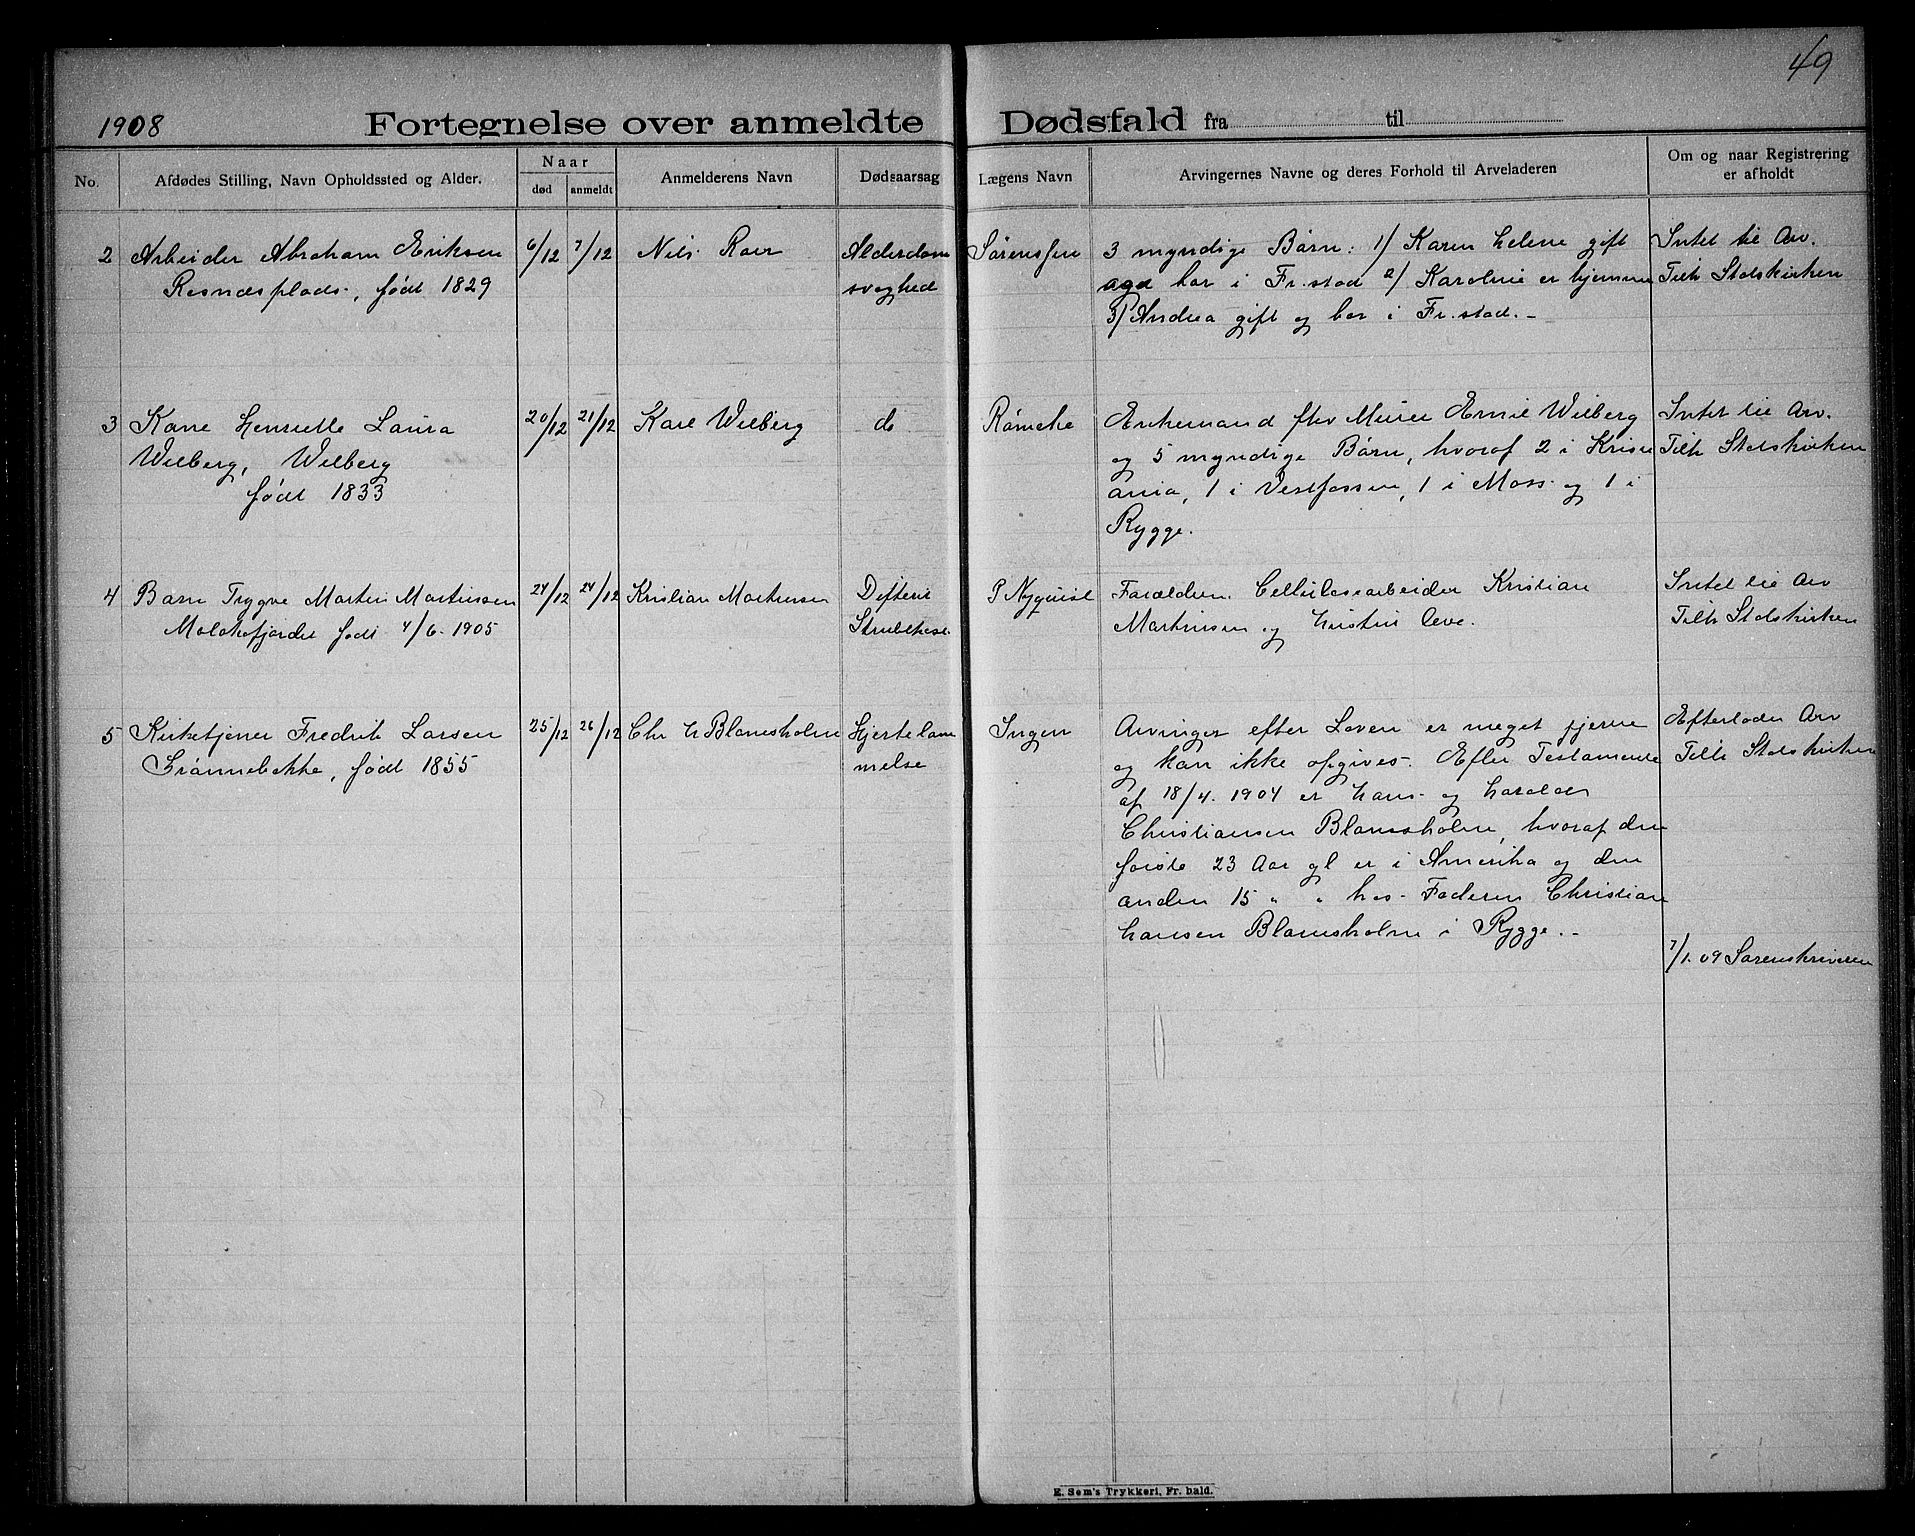 49
1908 Fortegnelse over anmeldte Dødsfald fra til
No.
Afdødes Stilling, Navn Opholdssted og Alder.
Naar
død
anmeldt
Anmelderens Navn
Dødsaarsag
Lægens Navn
Arvingernes Navne og deres Forhold til Arveladeren
Om og naar Registrering
er afholdt
2 Arbeider Abraham Eriksen
Resnæsplads, født 1829
6/12 7/12
Nils Roer
Alderdoms
svaghed
Sørenssen
3 myndige Børn: 1) Karen Helene gift
og bor i Fr.stad 2) Karoline er hjemme
3) Andrea gift og bor i Fr.stad.-
Intet til Arv.
Tilh Statskirken
3 Kone Henriette Laura
Wilberg, Wilberg
født 1833
20/12 21/12
Karl Wilberg
do
Rømcke
Enkemand fhv Murer Emil Wilberg
og 5 myndige Børn, hvoraf 2 i Kristi
ania, 1 i Vestfossen, 1 i Moss og 1 i
Rygge.
Intet til Arv.
Tilh Statskirken
4 Barn Trygve Martin Martinsen
født 4/6 1905
24/12 24/12
Kristian Martinsen
Difteri
Strubehoste
P Nyquist
Forældren Cellulosearbeider Kristian
Martinsen og Hustru leve.
Intet til Arv
Tilh Statskirken
5 Kirketjener Fredrik Larsen
Grønnebakke, født 1855
25/12 26/12
Chr H Blomsholm
Hjertelam
melse
Ingen
Arvinger efter Loven er meget fjerne
og kan ikke opgives. Efter Testamente
af 18/4 1904 er Hans og Harald
Christiansen Blomsholm, hvoraf den
første 23 Aar gl er i Amerika og den
anden 15 " " hos Faderen Christian
Hansen Blomsholm i Rygge.-
Efterlader Arv
Tilh Statskirken
7/1.09 Sorenskriveren
E. Sem's Trykkeri, Fr. hald.